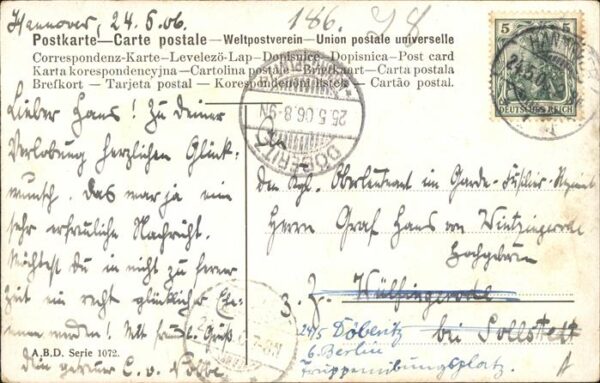 Hannover, 24.5.06.
186.
78
Postkarte — Carte postale — Weltpostverein — Union postale universelle
Correspondenz-Karte — Levelező-Lap — Dopisnice — Dopisnica — Post card
Karta korespondencyjna — Cartolina postale — Briefkaart — Carta postala
Brefkort — Tarjeta postal — Korespondenční lístek — Cartão postal.
5 5
DEUTSCHES REICH
HANNOVER
24.5.
DÖBERITZ
25.5.06.8-9N
Lieber Hans! Zu deiner
Verlobung herzlichen Glück-
wunsch. Das war ja eine
sehr erfreuliche Nachricht.
Möchtest du in nicht zu ferner
Zeit ein recht glücklicher Ehe-
mann werden! Mit freundl. Gruß
Dein getreuer C. v.
Den Kgl. Oberleutnant im Garde-Füsilier-Regiment
Herrn Graf Hans von Wintzingerode
Hochgeboren
z. Z. Wülfingerode
bei Sollstedt
24/5 Döberitz
b. Berlin
Truppenübungsplatz.
A.B.D. Serie 1072.